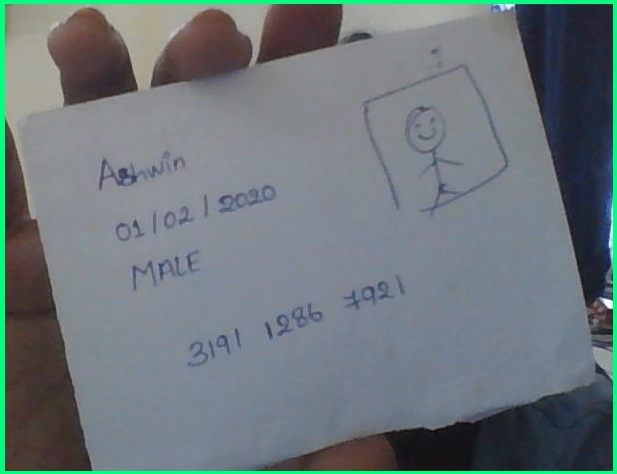 Ashwin
01/02/2020
MALE
3191 1286 7921